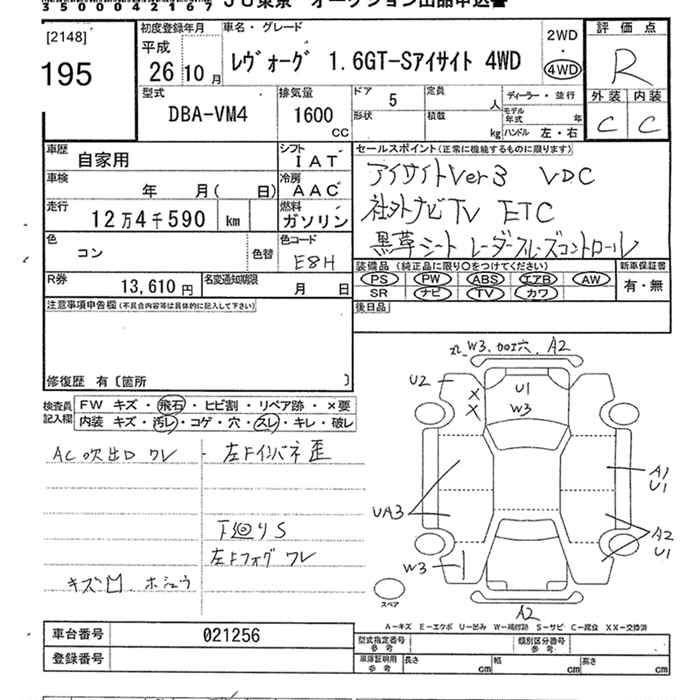 3500042167 JU東京 オークション出品申込書
[2148]
195
初度登録年月
平成
26年10月
車名・グレード
レヴォーグ 1.6GT-Sアイサイト 4WD
2WD
・
4WD
評価点
R
外装 内装
C C
型式
DBA-VM4
排気量
1600
CC
ドア
5
形状
定員
人
積載
kg
ディーラー・並行
モデル年式 年
ハンドル 左・右
車歴
自家用
シフト
IAT
車検
年 月( 日)
冷房
AAC
走行
12万4千590 km
燃料
ガソリン
色
コン
色替
色コード
E8H
R券
13,610円
名変通知期限
月 日
セールスポイント(正常に機能するものに限ります)
アイサイトVer3 VDC
社外ナビTV ETC
黒革シート レーダークルーズコントロール
装備品(純正品に限り○をつけてください)
PS PW ABS エアB AW
SR ナビ TV カワ
新車保証書
有・無
後日品
注意事項申告欄(不具合内容等は具体的に記入して下さい)
修復歴 有〔箇所 〕
検査員記入欄
FW キズ・飛石・ヒビ割・リペア跡・×要
内装 キズ・汚レ・コゲ・穴・スレ・キレ・破レ
AC吹出口ワレ
・左Fインパネ歪
下廻りS
左Fフォグワレ
キズ凹 ホシュウ
W3. A2
U2
U1
W3
X
X
A1
U1
UA3
A2
U1
W3
A2
スペア
A-キズ E-エクボ U-凹み W-補修跡 S-サビ C-腐食 XX-交換済
車台番号
021256
登録番号
型式指定番号
参考
類別区分番号
参考
車庫証明用
参考
長さ cm
幅 cm
高さ cm